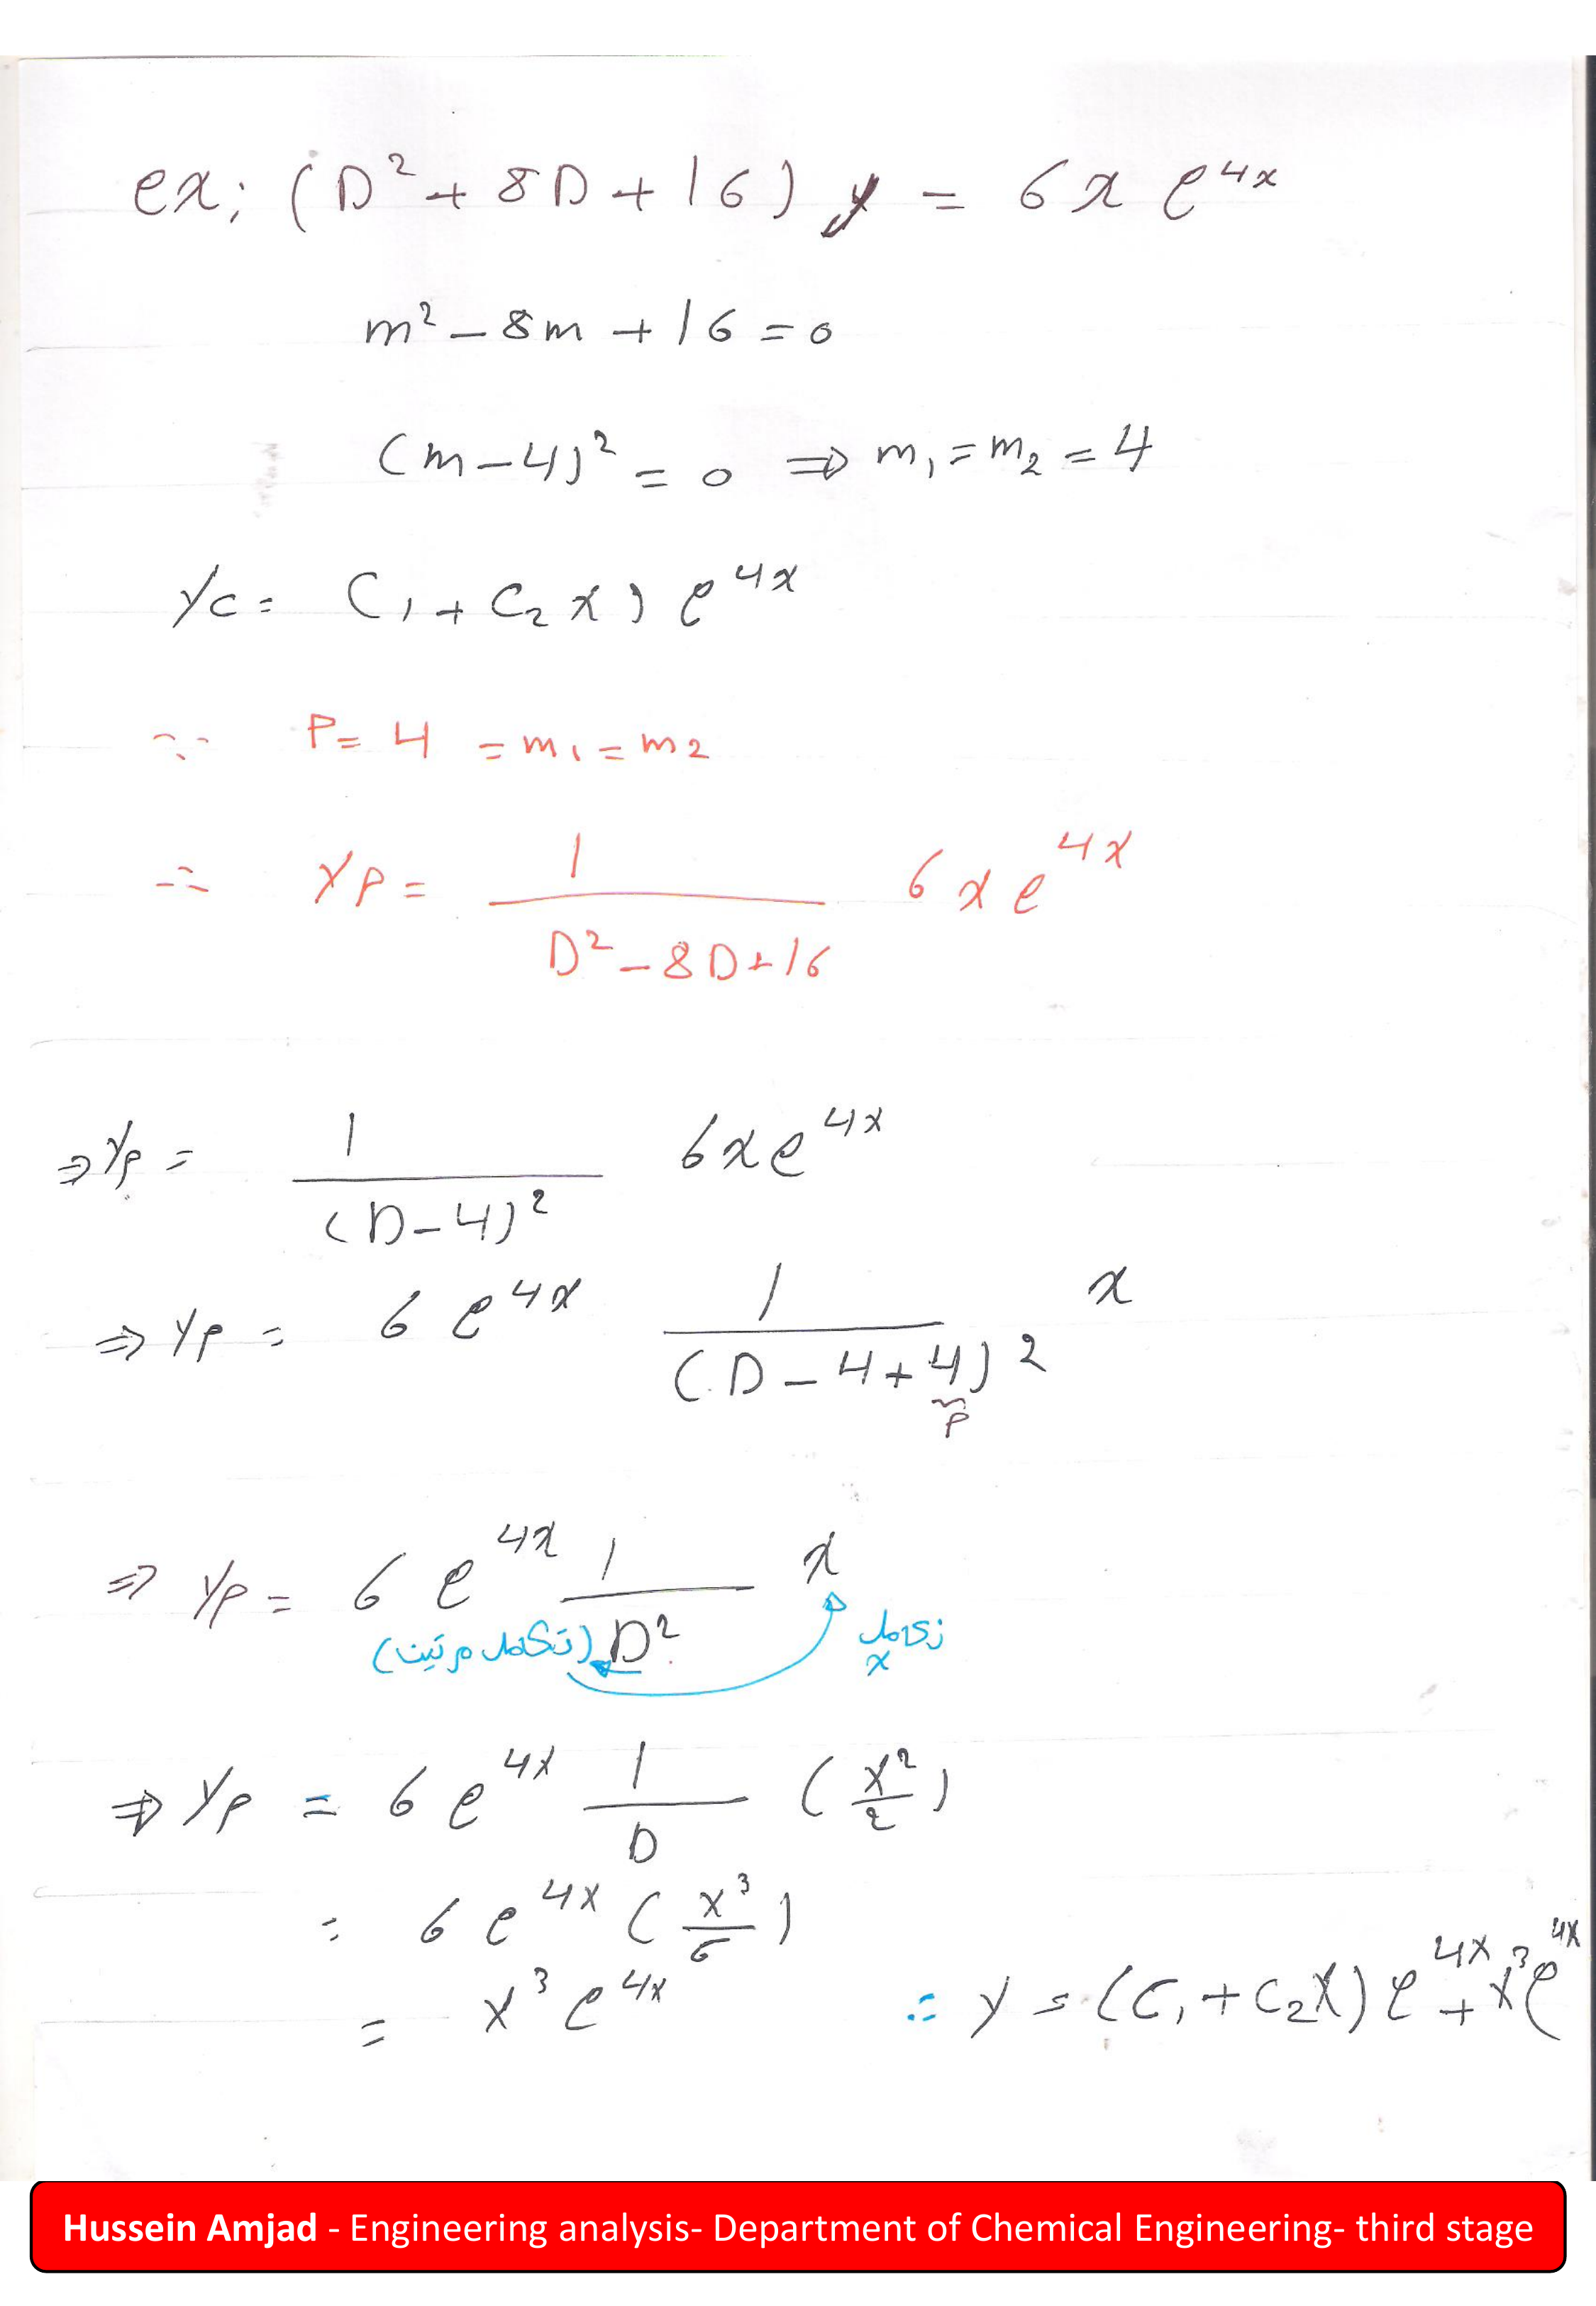 ex; (D² + 8D + 16) y = 6x e^4x
m² - 8m + 16 = 0
(m - 4)² = 0 ⇒ m₁ = m₂ = 4
yc = C₁ + C₂ x) e^4x
∵ P = 4 = m₁ = m₂
∴ yp = 1/(D² - 8D + 16) 6x e^4x
⇒ yp = 1/(D - 4)² 6x e^4x
⇒ yp = 6 e^4x 1/(D - 4 + 4)² x
P
⇒ yp = 6 e^4x 1/D² x
(تكامل مرتين)
x
⇒ yp = 6 e^4x 1/D (x²/2)
= 6 e^4x (x³/6)
= x³ e^4x ∴ y = (C₁ + C₂x) e^4x + x³e^4x
Hussein Amjad - Engineering analysis- Department of Chemical Engineering- third stage